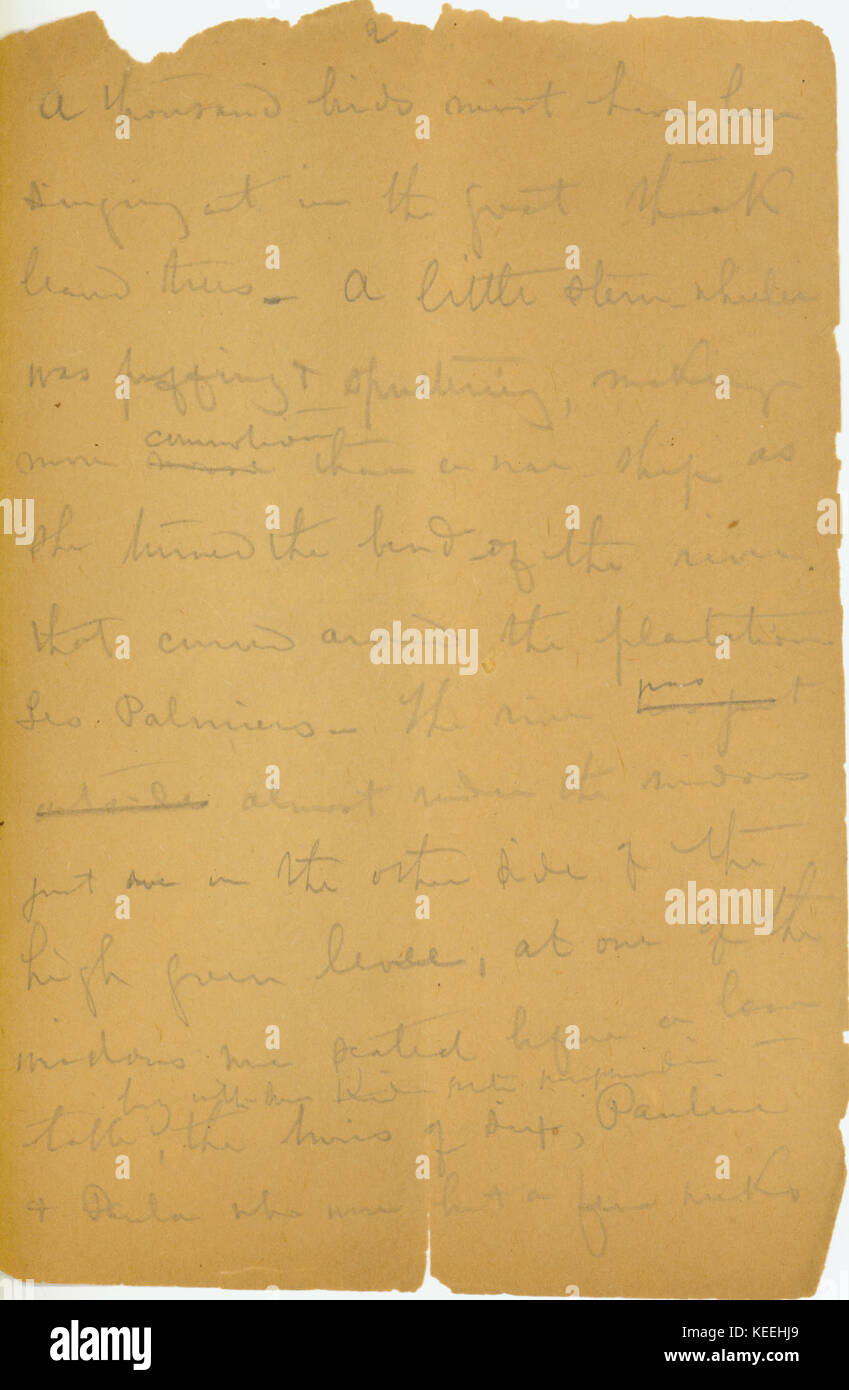 2
A thousand birds must have been
singing out in the great thick
leaved trees – A little stern-wheeler
was puffing & sputtering, making
commotion
more noise than a war ship as
she turned the bend of the river
that curved around the plantation
Les Palmiers – The river
was
outside almost under the windows
just over on the other side of the
high green levee, at one of the
windows were seated before a
table, the twins of six, Pauline
& Paula who were but a few weeks
a
alamy
a
alamy stock photo
KEEHJ9
www.alamy.com